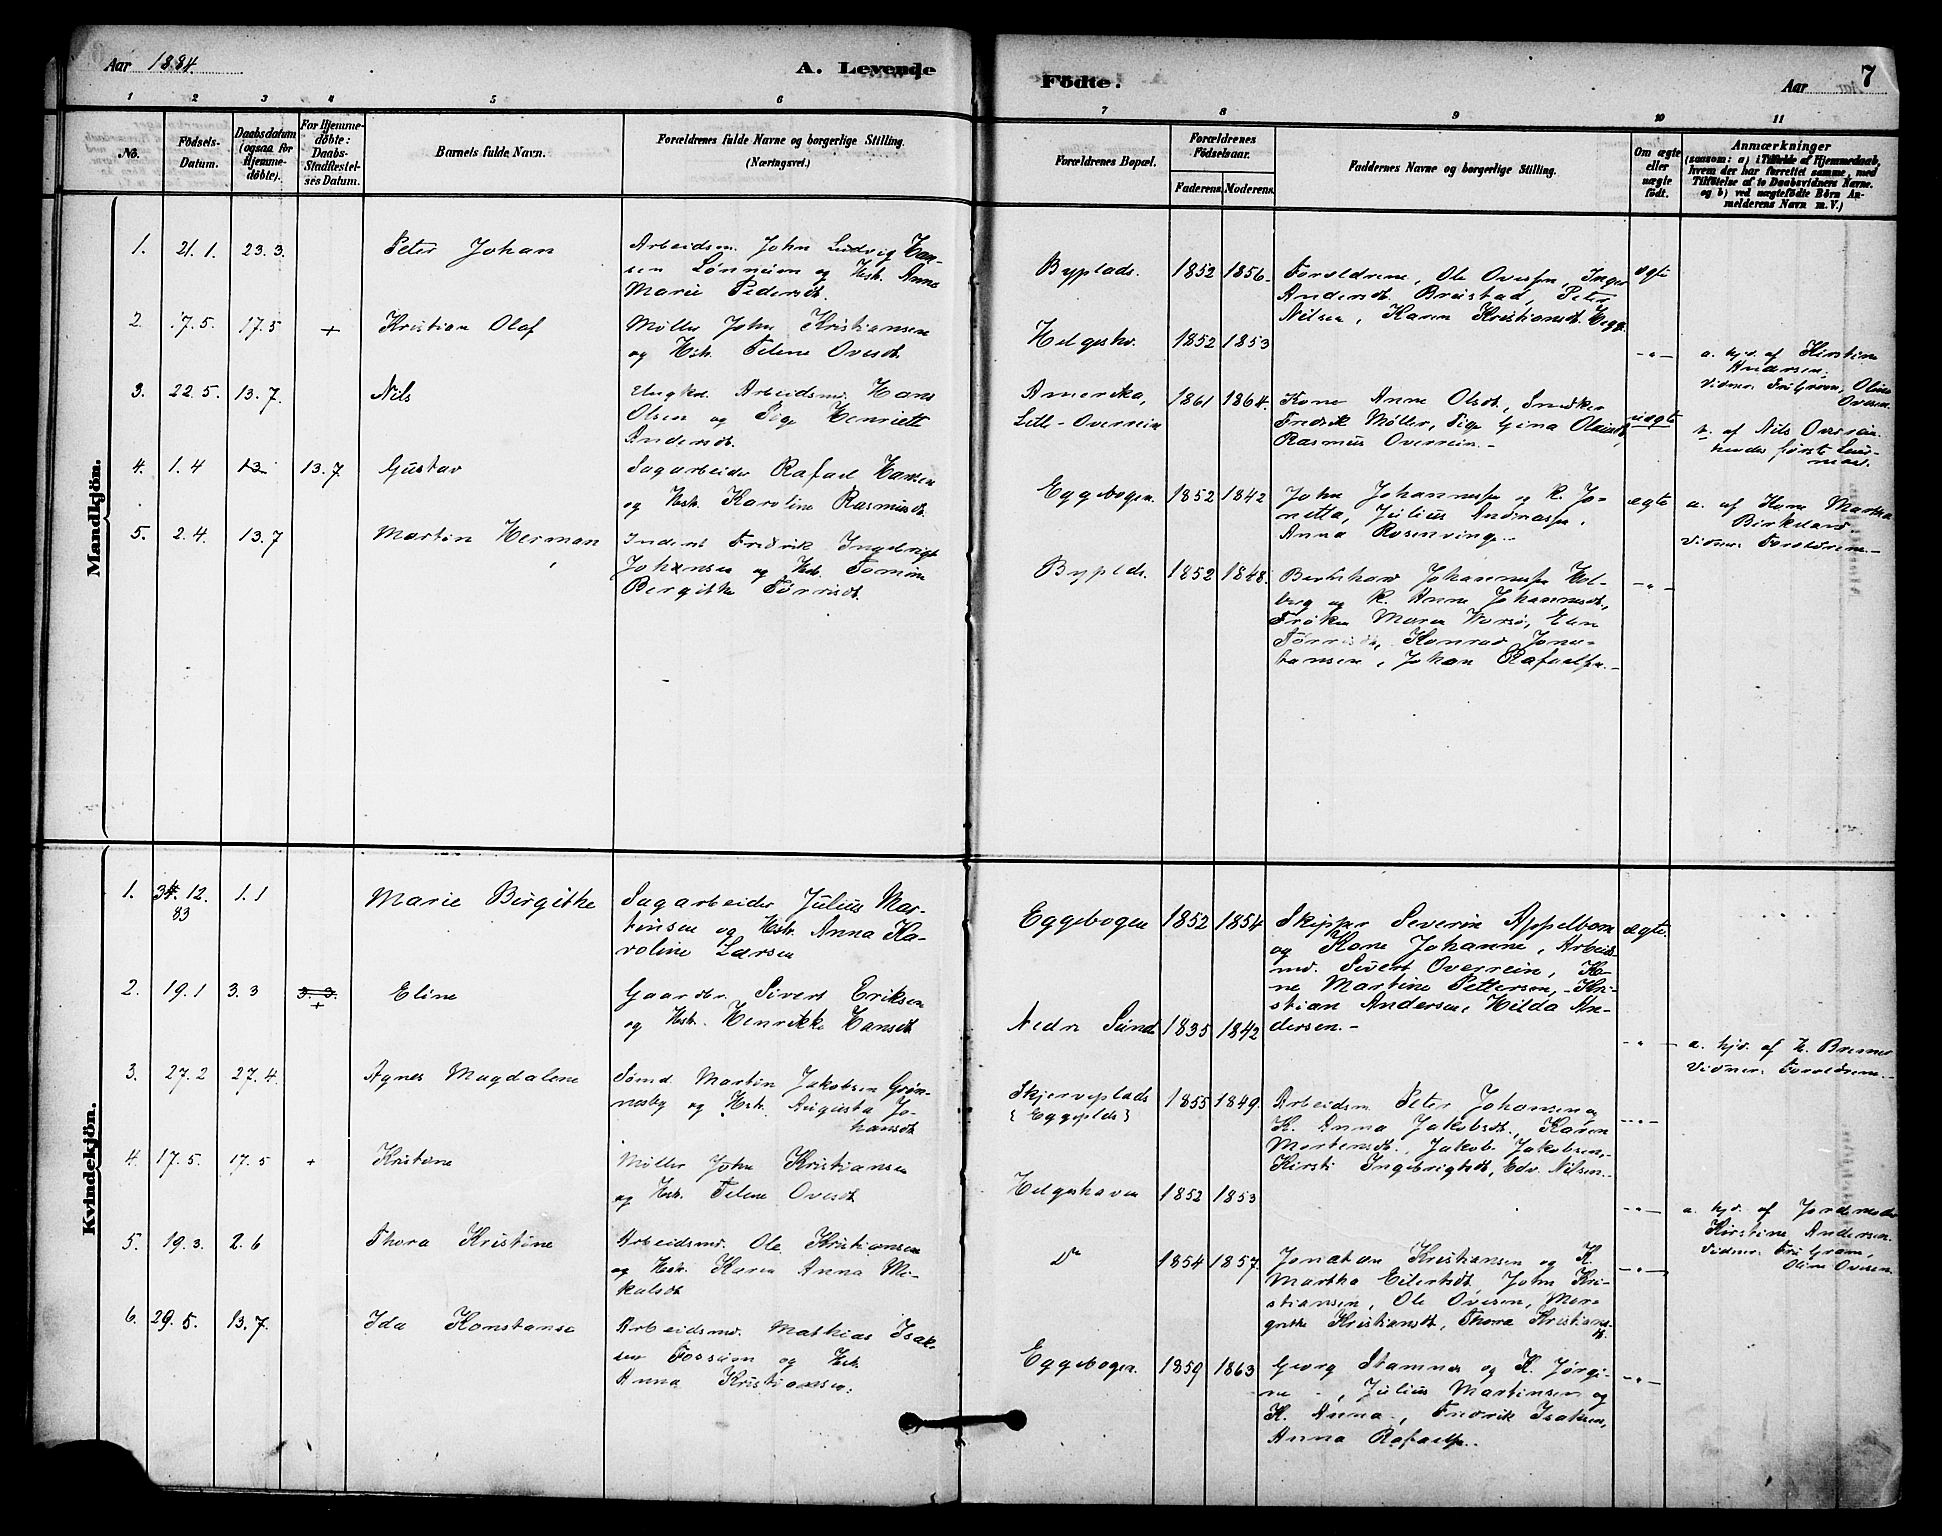 Aar 1884.
A. Levende
Födte.
Aar
7
1 2 3 4 5 6 7 8 9 10 11
No.
Födsels-
Datum.
Daabsdatum
(ogsaa for
Hjemme-
döbte).
For Hjemme-
döbte:
Daabs-
Stadfæstel-
ses Datum.
Barnets fulde Navn.
Forældrenes fulde Navne og borgerlige Stilling.
(Næringsvei.)
Forældrenes Bopæl.
Forældrenes
Födselsaar.
Faderens. Moderens.
Faddernes Navne og borgerlige Stilling.
Om ægte
eller
uægte
födt.
Anmærkninger
(saasom: a) i Tilfælde af Hjemmedaab,
hvem der har forrettet samme, med
Tilföielse af to Daabsvidners Navne.
og b) ved uægtefödte Börn An-
melderens Navn m. V.)
Mandkjön.
1. 21.1. 23.3. Peter Johan
Arbeidsm. John Ludvig Han-
sen Lønneim og Hst. Anna
Marie Pedersdt.
Byplads. 1852 1856.
Forældrene, Ole Ovesen, Inger
Andersdt. Breistad, Peter
Nilsen, Karen Kristiansdt. Hegg.
ægte
2. 7.5. 17.5 + Kristian Olaf
Møller John Kristiansen
og Hst. Telene Ovesdt.
Helgeshv. 1852 1853
-"-
a. hjd. af Kirstine
Andersen.
Vidner: Fru Gram, Oline
Ovesen.
3. 22.5. 13.7. Nils
Ungkl. Arbeidsmd. Hans
Olsen og Pige Henriette
Andersdt.
Amerika,
Litle-Overrein
1861 1864.
Kone Anne Olsdt, Snedker
Fredrik Møller, Pige Gina Olaisdt,
Rasmus Overrein.-
uægte
b. af Nils Overrein.
hendes første Leier-
maal.
4. 1.4 13. 13.7 Gustav
Sagarbeider Rafael Hansen
og Hst. Karoline Rasmusdt.
Eggebogen. 1852 1842
John Johannessen og K. Jo-
netta, Julius Andreassen,
Anna Rosenvinge.-
ægte
a. af Kone Martha
Birkeland.
Vidner: Forældrene.-
5. 2.4. 13.7 Martin Herman
Inderst Fredrik Ingebrigt
Johansen og Hst. Tomine
Bergitte Tørrisdt.
Byplds. 1852 1848.
Bernhard Johannessen Hol-
berg og K. Anne Johannesdt,
Frøken Maren Worsø, Elen
Tørrisdt, Konrad Jona-
tansen, Johan Rafaelsen.-
-"-
Kvindekjön.
1. 31.12. 83 1.1 Marie Birgithe
Sagarbeider Julius Mar-
tinsen og Hst. Anna Ka-
roline Larsen
Eggebogen 1852 1854
Skipper Severin Appelbom
og Kone Johanne, Arbeids-
md. Sivert Overrein, Ko-
ne Martine Pettersen, Kri-
stian Andersen, Hilda An-
dersen.-
ægte.
2. 19.1 3.3 3.3. + Eline
Gaardbr. Sivert Eriksen
og Hst. Henrikke Hansdt
Nedre Sund 1835 1842
-"-
a. hjd. af H. Bremer
Vidner: Forældrene.-
3. 27.2 27.4. Agnes Magdalene
Sømd. Martin Jakobsen Grøn-
nesby og Hst. Augusta Jo-
hansdt
Skjerveplads
{Eggeplds}
1855 1849.
Arbeidsm. Peter Johansen og
K. Anna Jakobsdt., Karen
Mortensdt., Jakob Jakobsen,
Kirsti Ingebrigtsdt, Edv. Nilsen.-
-"-
4. 17.5. 17.5 + Kristine
Møller John Kristiansen
og Hst. Telene Ovesdt
Helgeshaven 1852 1853
-"-
a. hjd. af Jordmoder
Kirstine Andersen.
Vidner: Fru Gram,
Oline Ovesen
5. 19.3. 2.6 Thora Kristine
Arbeidsmd. Ole Kristiansen
og Hst. Karen Anna Mi-
kalsdt
Do 1854 1857.
Jonatan Kristiansen og K.
Martha Eilertsdt. John Kri-
stiansen, Ole Ovesen, Mar-
grethe Kristiansdt, Thora Kristians-
dt.
-"-
6. 29.5. 13.7. Ida Konstanse
Arbeidsmd. Mathias Isak-
sen Fossum og Hst.
Anna Kristiansen.
Eggebogen. 1859 1863
Georg Stamnes og K. Jørgi-
ne -, Julius Martinsen og
K. Anna, Fredrik Isaksen,
Anna Rafaelsen.
-"-